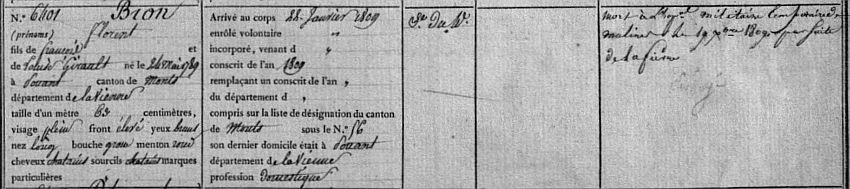 N.° 6401 Bion
(prénoms) Florent
fils de francois et
de Girault né le 26 Mars 89
à Pouant canton de Monts
département de la Vienne
taille d'un mètre 65 centimètres,
visage plein front élevé yeux bruns
nez long bouche grande menton rond
cheveux chatains sourcils chatains marques
particulières
Arrivé au corps 28 Janvier 1809
enrôlé volontaire "
incorporé, venant d "
conscrit de l'an 1809
remplaçant un conscrit de l'an ,
du département d ,
compris sur la liste de désignation du canton
de Monts sous le N.° 56
son dernier domicile était à Pouant
département de la Vienne
profession Domestique
Se du Von.
mort à l'hopal militaire temporaire de
malines le 19 xbre 1809 par suite
de la fièvre